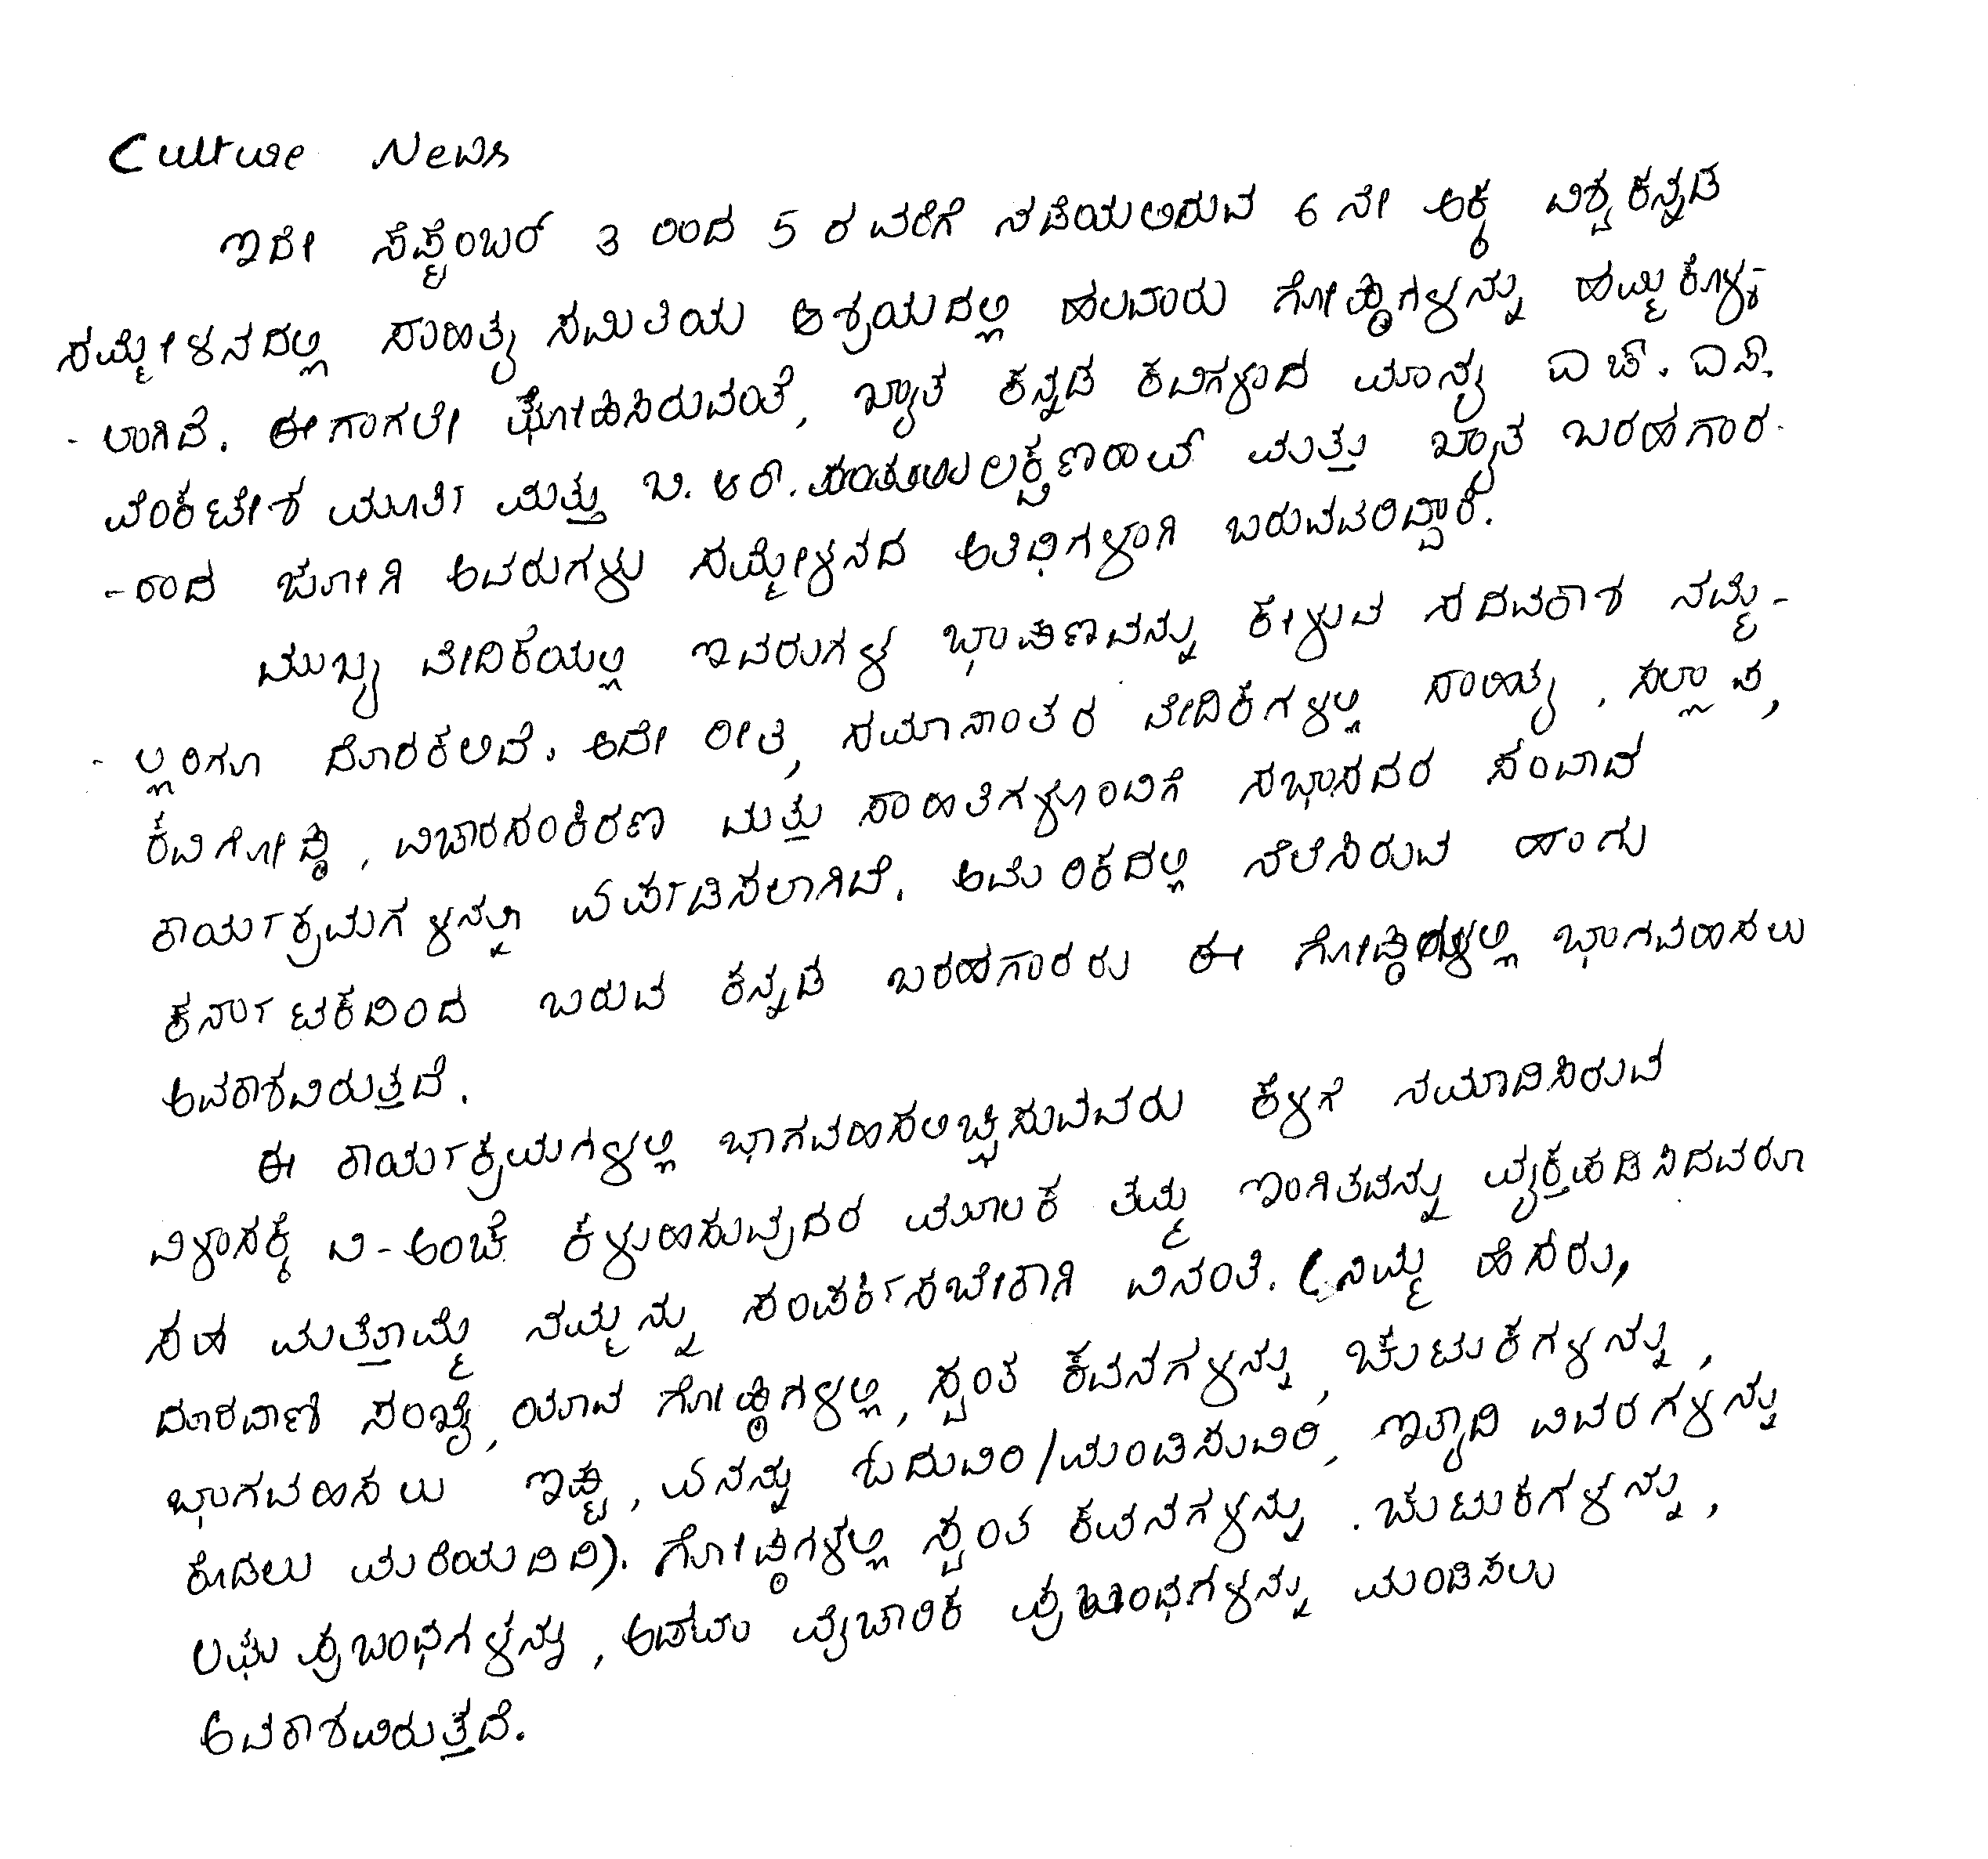 Culture News
ಇದೇ ಸೆಪ್ಟೆಂಬರ್ 3 ರಿಂದ 5 ರ ವರೆಗೆ ನಡೆಯಲಿರುವ 6 ನೇ ಅಕ್ಕ ವಿಶ್ವಕನ್ನಡ
ಸಮ್ಮೇಳನದಲ್ಲಿ ಸಾಹಿತ್ಯ ಸಮಿತಿಯ ಆಶ್ರಯದಲ್ಲಿ ಹಲವಾರು ಗೋಷ್ಠಿಗಳನ್ನು ಹಮ್ಮಿಕೊಳ್ಳ-
- ಲಾಗಿದೆ. ಈಗಾಗಲೇ ಘೋಷಿಸಿರುವಂತೆ, ಖ್ಯಾತ ಕನ್ನಡ ಕವಿಗಳಾದ ಮಾನ್ಯ ಎಚ್. ಎಸ್.
ವೆಂಕಟೇಶ ಮೂರ್ತಿ ಮತ್ತು ಬಿ. ಆರ್. ಲಕ್ಷ್ಮಣರಾವ್ ಮತ್ತು ಖ್ಯಾತ ಬರಹಗಾರ-
-ರಾದ ಜೋಗಿ ಅವರುಗಳು ಸಮ್ಮೇಳನದ ಅತಿಥಿಗಳಾಗಿ ಬರುವವರಿದ್ದಾರೆ.
ಮುಖ್ಯ ವೇದಿಕೆಯಲ್ಲಿ ಇವರುಗಳ ಭಾಷಣವನ್ನು ಕೇಳುವ ಸದವಕಾಶ ನಮ್ಮೆ-
- ಲ್ಲರಿಗೂ ದೊರಕಲಿದೆ. ಅದೇ ರೀತಿ, ಸಮಾನಾಂತರ ವೇದಿಕೆಗಳಲ್ಲಿ ಸಾಹಿತ್ಯ, ಸಲ್ಲಾಪ,
ಕವಿಗೋಷ್ಠಿ, ವಿಚಾರಸಂಕಿರಣ ಮತ್ತು ಸಾಹಿತಿಗಳೊಂದಿಗೆ ಸಭಾಸದರ ಸಂವಾದ
ಕಾರ್ಯಕ್ರಮಗಳನ್ನೂ ಏರ್ಪಡಿಸಲಾಗಿದೆ. ಅಮೆರಿಕದಲ್ಲಿ ನೆಲೆಸಿರುವ ಹಾಗು
ಕರ್ನಾಟಕದಿಂದ ಬರುವ ಕನ್ನಡ ಬರಹಗಾರರು ಈ ಗೋಷ್ಠಿಗಳಲ್ಲಿ ಭಾಗವಹಿಸಲು
ಅವಕಾಶವಿರುತ್ತದೆ.
ಈ ಕಾರ್ಯಕ್ರಮಗಳಲ್ಲಿ ಭಾಗವಹಿಸಲಿಚ್ಛಿಸುವವರು ಕೆಳಗೆ ನಮೂದಿಸಿರುವ
ವಿಳಾಸಕ್ಕೆ ವಿ-ಅಂಚೆ ಕಳುಹಿಸುವುದರ ಮೂಲಕ ತಮ್ಮ ಇಂಗಿತವನ್ನು ವ್ಯಕ್ತಪಡಿಸಿದವರೂ
ಸಹ ಮತ್ತೊಮ್ಮೆ ನಮ್ಮನ್ನು ಸಂಪರ್ಕಿಸಬೇಕಾಗಿ ವಿನಂತಿ. (ನಿಮ್ಮ ಹೆಸರು,
ದೂರವಾಣಿ ಸಂಖ್ಯೆ, ಯಾವ ಗೋಷ್ಠಿಗಳಲ್ಲಿ, ಸ್ವಂತ ಕವನಗಳನ್ನು, ಚುಟುಕಗಳನ್ನು,
ಭಾಗವಹಿಸಲು ಇಷ್ಟ, ಏನನ್ನು ಓದುವಿರಿ/ಮಂಡಿಸುವಿರಿ, ಇತ್ಯಾದಿ ವಿವರಗಳನ್ನು
ಕೊಡಲು ಮರೆಯದಿರಿ). ಗೋಷ್ಠಿಗಳಲ್ಲಿ ಸ್ವಂತ ಕವನಗಳನ್ನು, ಚುಟುಕಗಳನ್ನು,
ಲಘು ಪ್ರಬಂಧಗಳನ್ನು, ಅಥವಾ ವೈಚಾರಿಕ ಪ್ರಬಂಧಗಳನ್ನು ಮಂಡಿಸಲು
ಅವಕಾಶವಿರುತ್ತದೆ.